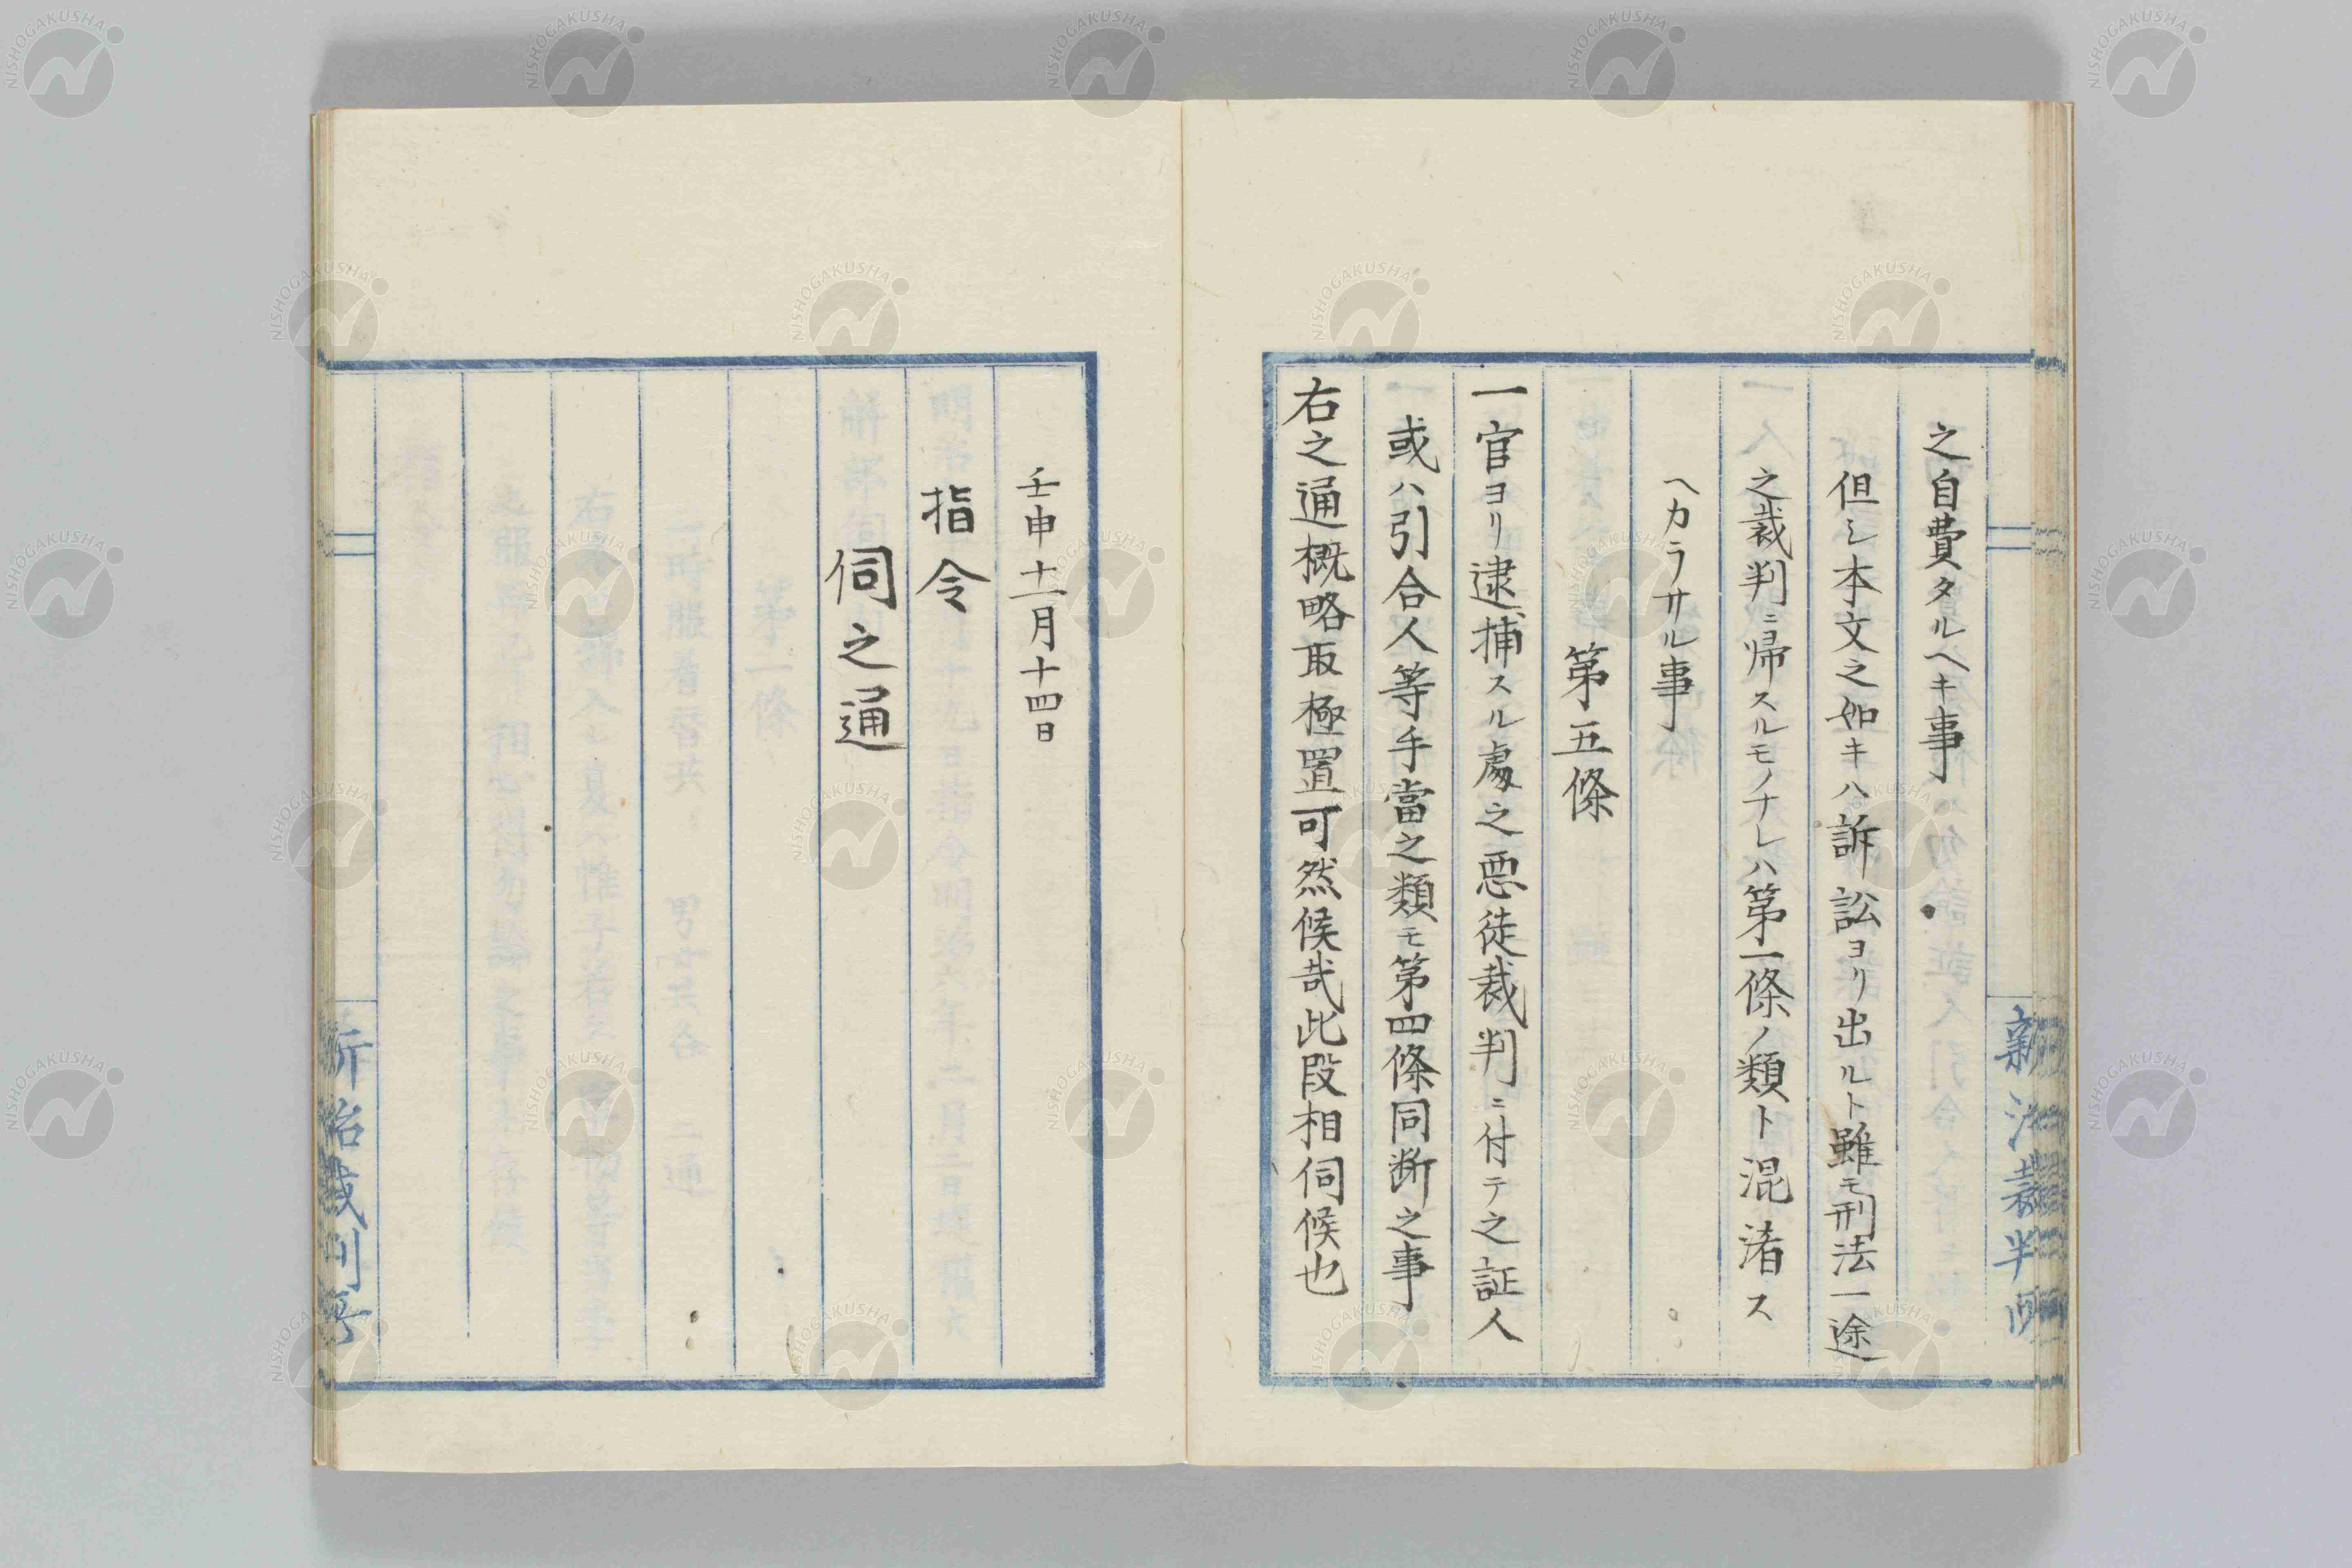 之自費タルヘキ事
但シ本文之如キハ訴訟ヨリ出ルト雖モ刑法一途
之裁判ニ帰スルモノナレハ第一條ノ類ト混淆ス
ヘカラサル事
第五條
一官ヨリ逮捕スル處之悪徒裁判ニ付テ之証人
或ハ引合人等手當之類モ第四條同断之事
右之通概略取極置可然候哉此段相伺候也
壬申十一月十四日
指令
伺之通
新治裁判所
NISHOGAKUSHA